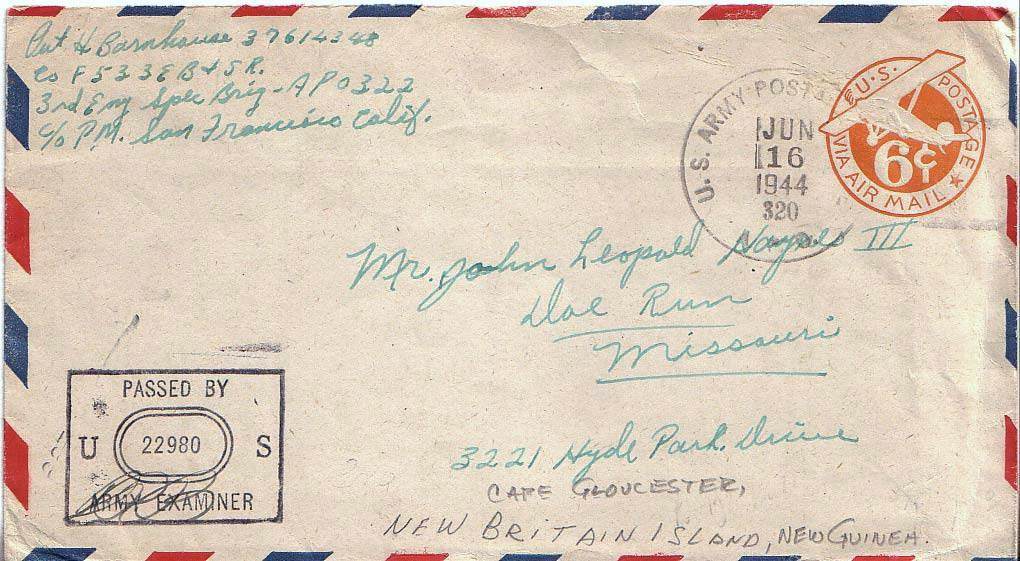 Pvt H Barnhouse 37614348
Co F 533 E B & S R.
3rd Eng Spec Brig - APO 322
c/o P.M. San Francisco Calif.
U.S. ARMY POSTAL
JUN
16
1944
320
U.S. POSTAGE
6¢
VIA AIR MAIL
Mr. John Leopold Haynes III
Doe Run
Missouri
PASSED BY
U 22980 S
ARMY EXAMINER
3221 Hyde Park Drive
CAPE GLOUCESTER,
NEW BRITAIN ISLAND, NEW GUINEA.